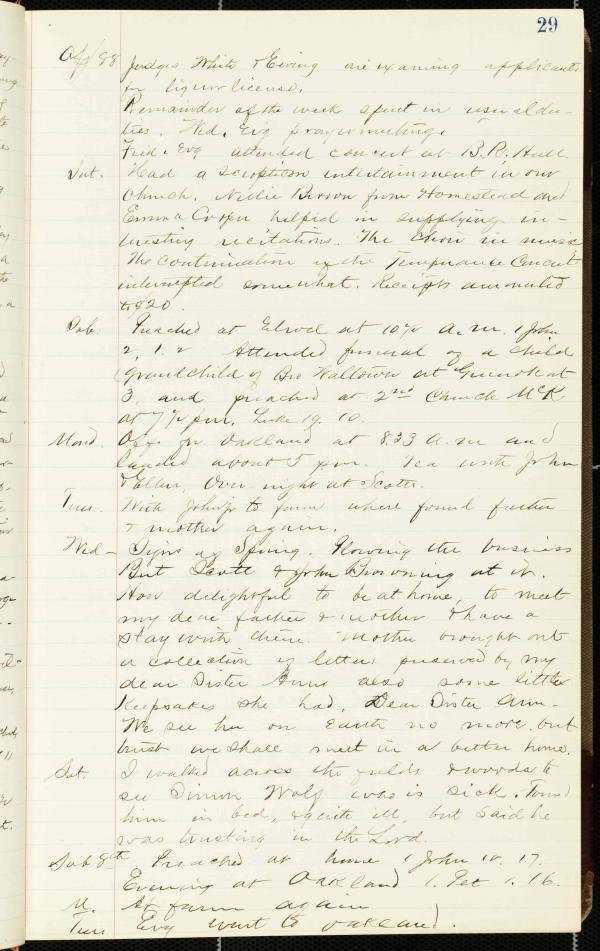 29
Apl 88 Judges White & Ewing are examing applicants
for liquor license.
Remainder of the week spent in usual du-
ties. Wed. Evg prayermeeting.
Frid. Evg attended concert at B.R. Hall
Sat. Had a scropticon entertainment in our
Church. Nellie Brown from Homestead and
Emma Cooper helped in supplying in-
teresting recitations. The Choir in music
The continuation of the Temperance Concert
interrupted somewhat. Receipts amounted
to $20.
Sab. Preached at Elrod at 10½ a.m. 1 John
2, 1. 2 Attended funeral of a child
Grandchild of Bro Walltown at Greenoak at
3, and preached at 2nd Church McK.
at 7½ p.m. Luke 19. 10.
Mond. Off for Oakland at 8.33 a.m and
landed about 5 p.m. Tea with John
& Ellen, Over-night at Scotts.
Tues. With John Jr to farm where found father
& mother again.
Wed - Signs of Spring. Plowing the business
But Scott & John Browning at it.
How delightful to be at home, to meet
my dear father & mother & have a
stay with them. Mother brought out
a collection of letters preserved by my
dear Sister Anns also some little
Keepsakes she had. Dear Sister Ann-
We see her on Earth no more. but
trust we shall meet in a better home.
Sat. I walked across the fields & woods to
see Simon Wolf who is sick. Found
him in bed, & quite ill, but said he
was trusting in the Lord.
Sab 8th Preached at home 1 John 10. 17.
Evening at Oakland 1. Pet 1. 16.
M. At farm again
Tues Evg went to Oakland.